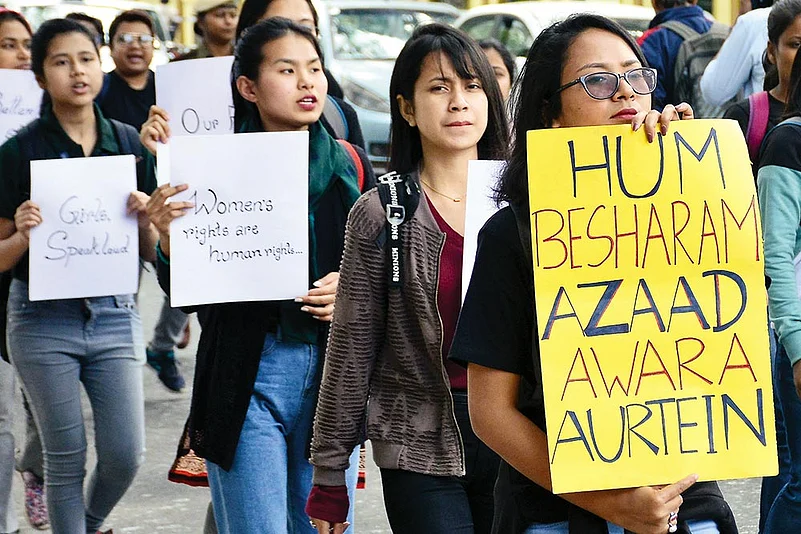 Girls,
Speak loud
Our
Women's
rights are
human rights...
MINIONS
HUM
BESHARAM
AZAAD
AWARA
AURTEIN